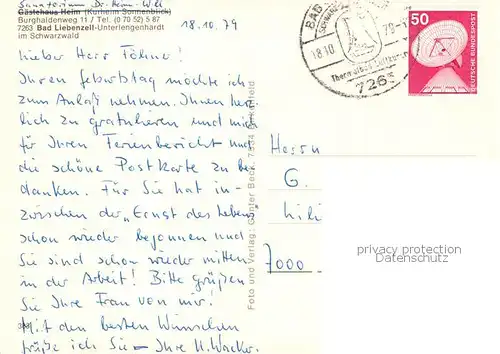 Sanatorium Dr.
Gästehaus Heim (Kurheim Sonnenblick)
Burghaldenweg 11 / Tel. (0 70 52) 5 87
7263 Bad Liebenzell-Unterlengenhardt
im Schwarzwald
18.10.79
Lieber Herr Föhner!
Ihren Geburtstag möchte ich
zum Anlaß nehmen, Ihnen herz-
lich zu gratulieren und mich
für Ihren Ferienbericht und
die schöne Postkarte zu be-
danken. Für Sie hat in-
zwischen der "Ernst des Lebens"
schon wieder begonnen und
Sie sind schon wieder mitten
in der Arbeit! Bitte grüßen
Sie Ihre Frau von mir!
Mit den besten Wünschen
grüße ich Sie – Ihre H. Wacker.
Foto und Verlag: Günter Beck, 7534
BAD
18.10
79-1
7263
50
DEUTSCHE BUNDESPOST
Herrn
G.
7000
privacy protection